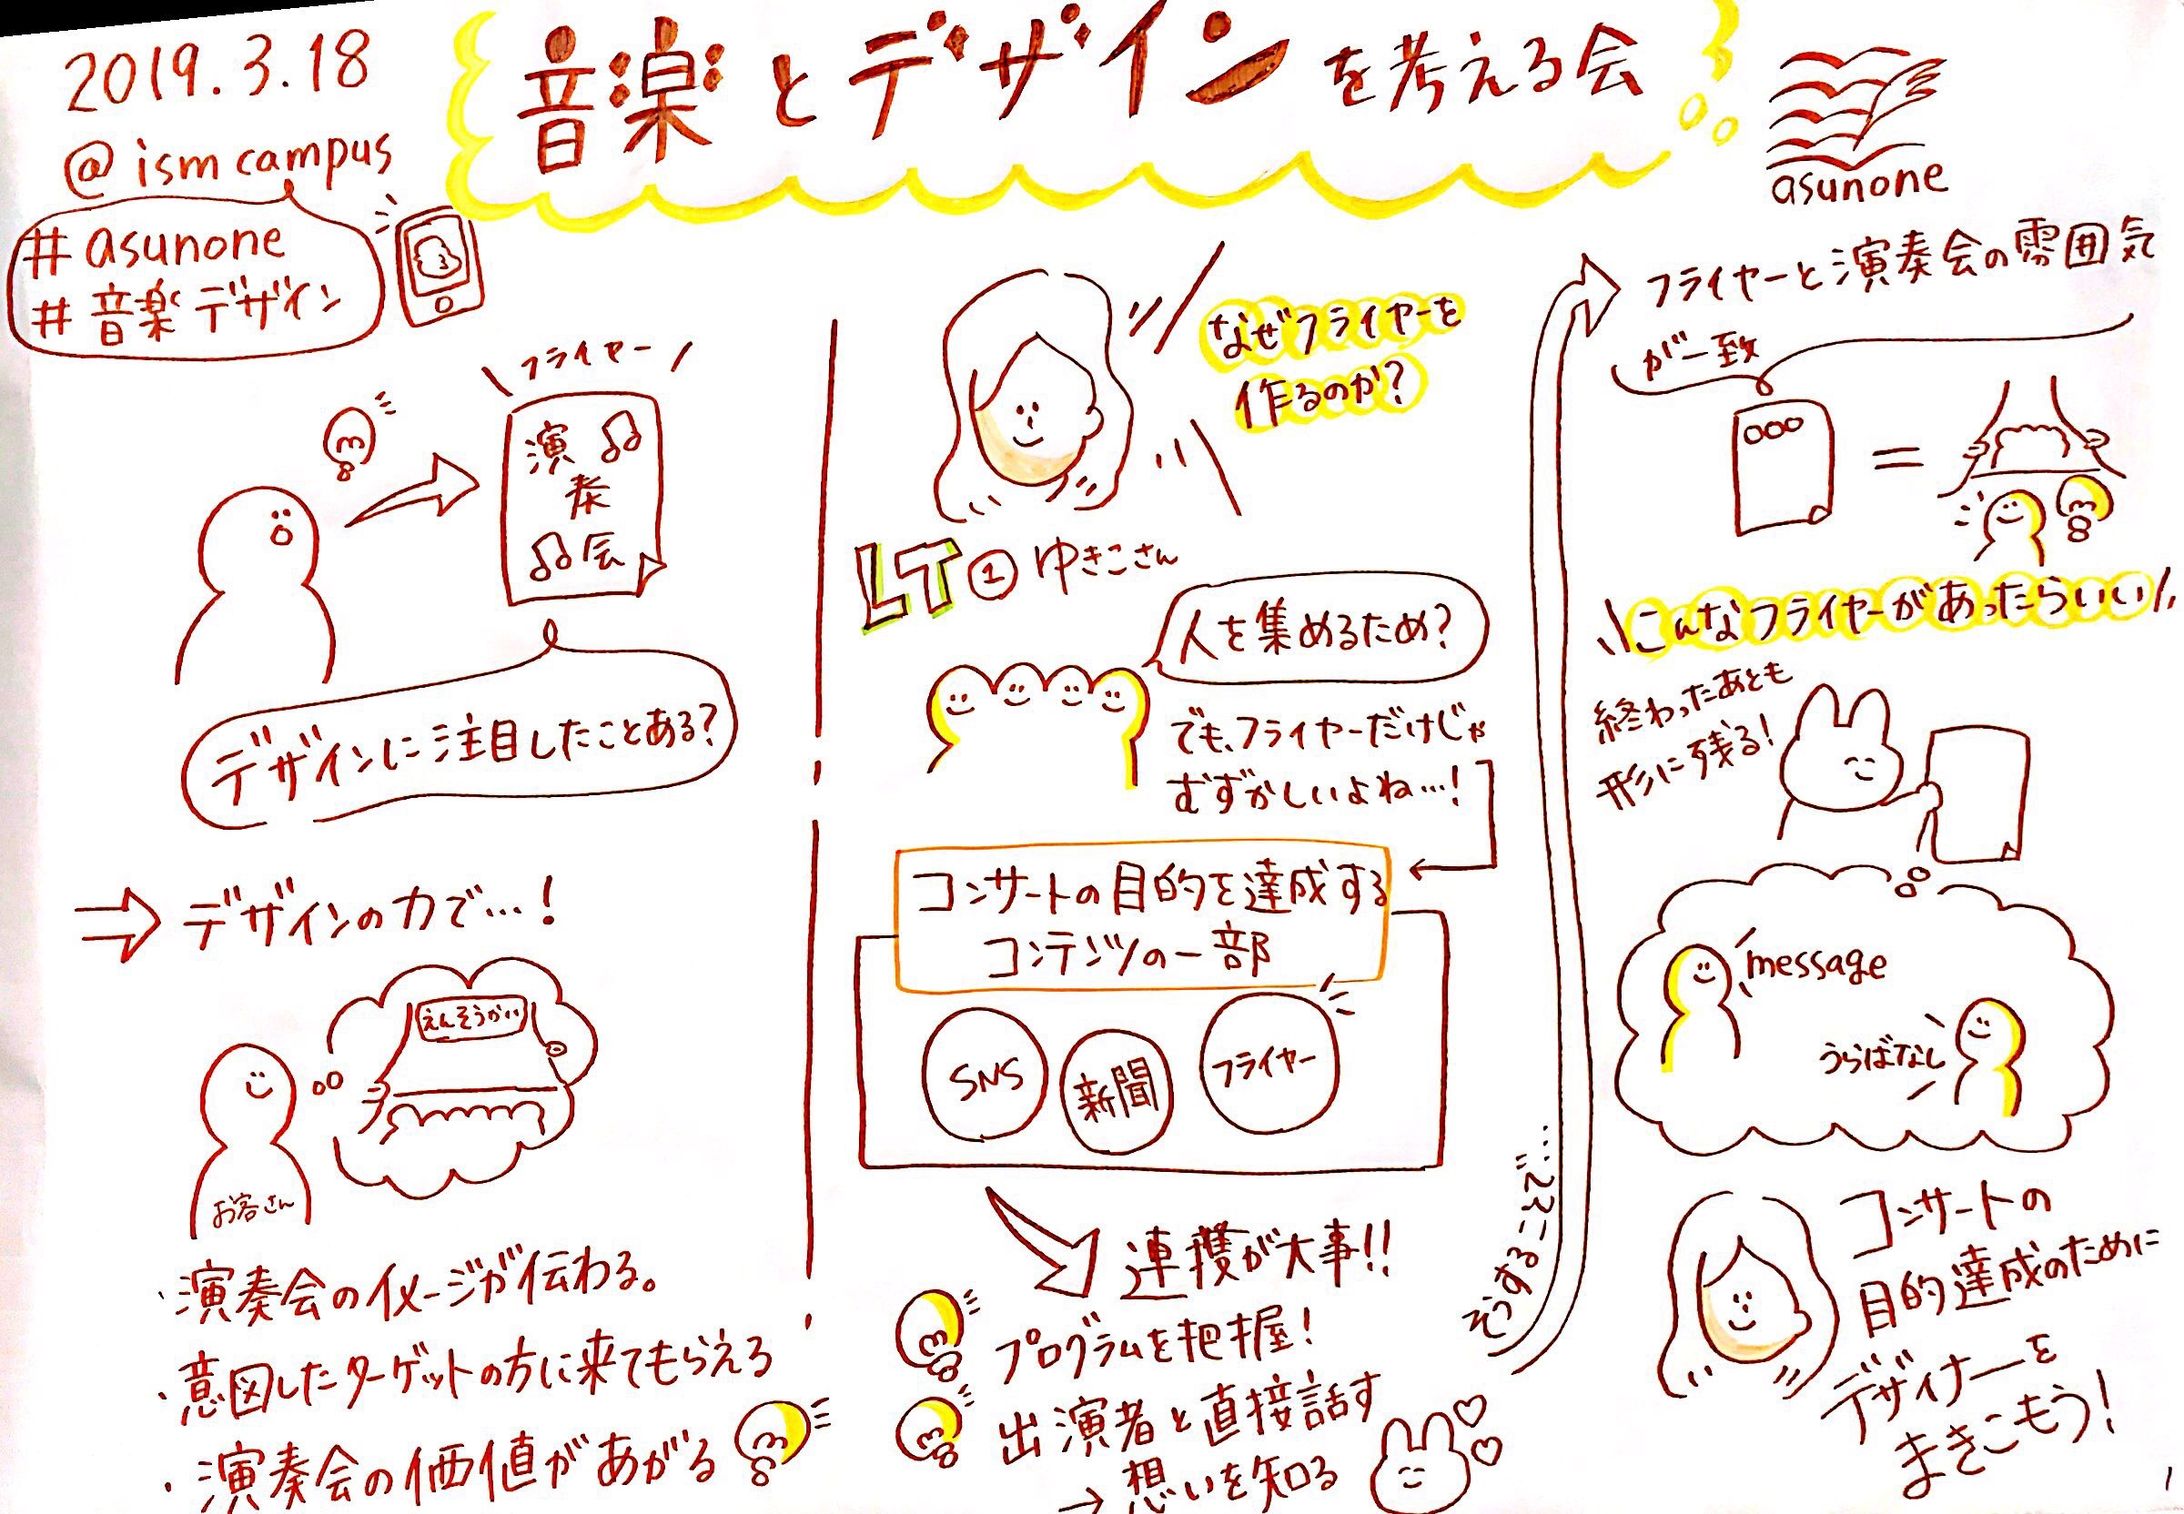 2019.3.18
@ism campus
#asunone
#音楽デザイン
音楽とデザインを考える会
asunone
フライヤー
演
奏
会
デザインに注目したことある?
デザインの力で…!
えんそうかい
お客さん
・演奏会のイメージが伝わる。
・意図したターゲットの方に来てもらえる
・演奏会の価値があがる
なぜフライヤーを
作るのか?
LT① ゆきこさん
人を集めるため?
でも、フライヤーだけじゃ
むずかしいよね…!
コンサートの目的を達成する
コンテンツの一部
SNS
新聞
フライヤー
連携が大事!!
プログラムを把握!
出演者と直接話す
→想いを知る
そうすることで…
フライヤーと演奏会の雰囲気
が一致
=
こんなフライヤーがあったらいい
終わったあとも
形に残る!
message
うらばなし
コンサートの
目的達成のために
デザイナーを
まきこもう!
1